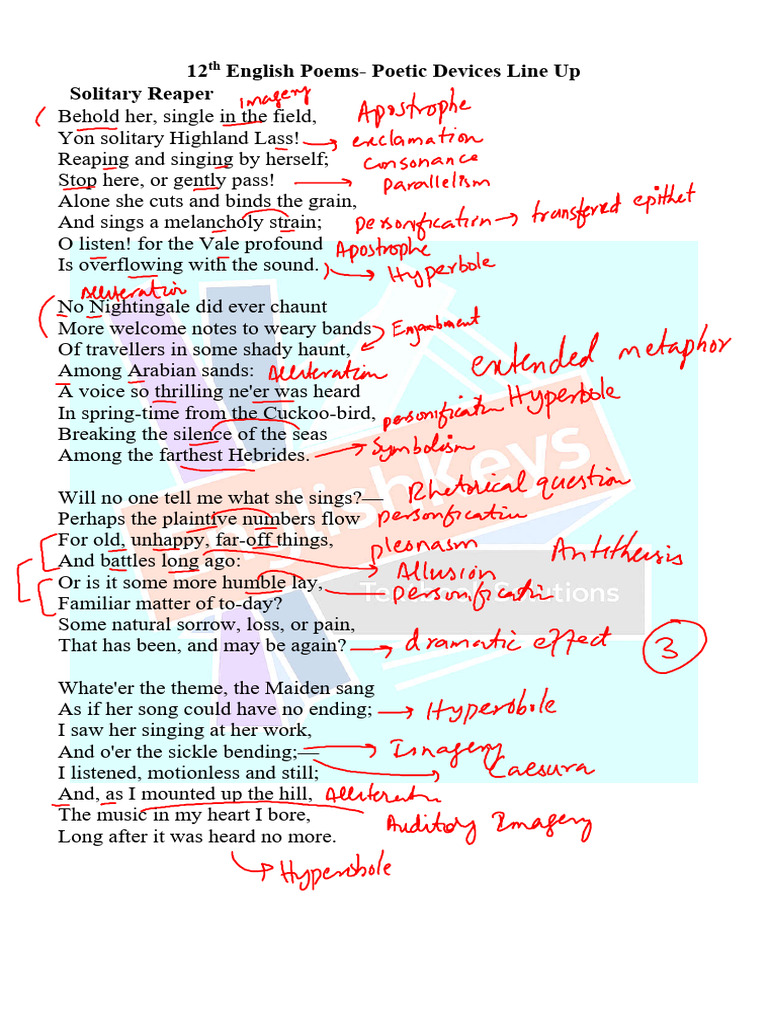 12th English Poems- Poetic Devices Line Up
Solitary Reaper
Imagery
Behold her, single in the field, Apostrophe
Yon solitary Highland Lass! exclamation
Reaping and singing by herself; Consonance
Stop here, or gently pass! Parallelism
Alone she cuts and binds the grain,
And sings a melancholy strain; Personification transferred epithet
O listen! for the Vale profound Apostrophe
Is overflowing with the sound. Hyperbole
Alliteration
No Nightingale did ever chaunt
More welcome notes to weary bands Enjambment
Of travellers in some shady haunt, extended metaphor
Among Arabian sands: Alliteration
A voice so thrilling ne'er was heard Hyperbole
In spring-time from the Cuckoo-bird, personification
Breaking the silence of the seas
Among the farthest Hebrides. Symbolism
Will no one tell me what she sings?— Rhetorical question
Perhaps the plaintive numbers flow personification
For old, unhappy, far-off things, pleonasm Antithesis
And battles long ago: Allusion
Or is it some more humble lay, personification
Familiar matter of to-day?
Some natural sorrow, loss, or pain,
That has been, and may be again? dramatic effect 3
Whate'er the theme, the Maiden sang
As if her song could have no ending; Hyperobile
I saw her singing at her work,
And o'er the sickle bending;— Imagery
I listened, motionless and still; Caesura
And, as I mounted up the hill, Alliteration
The music in my heart I bore, Auditory Imagery
Long after it was heard no more.
Hyperbole
EnglishKeys